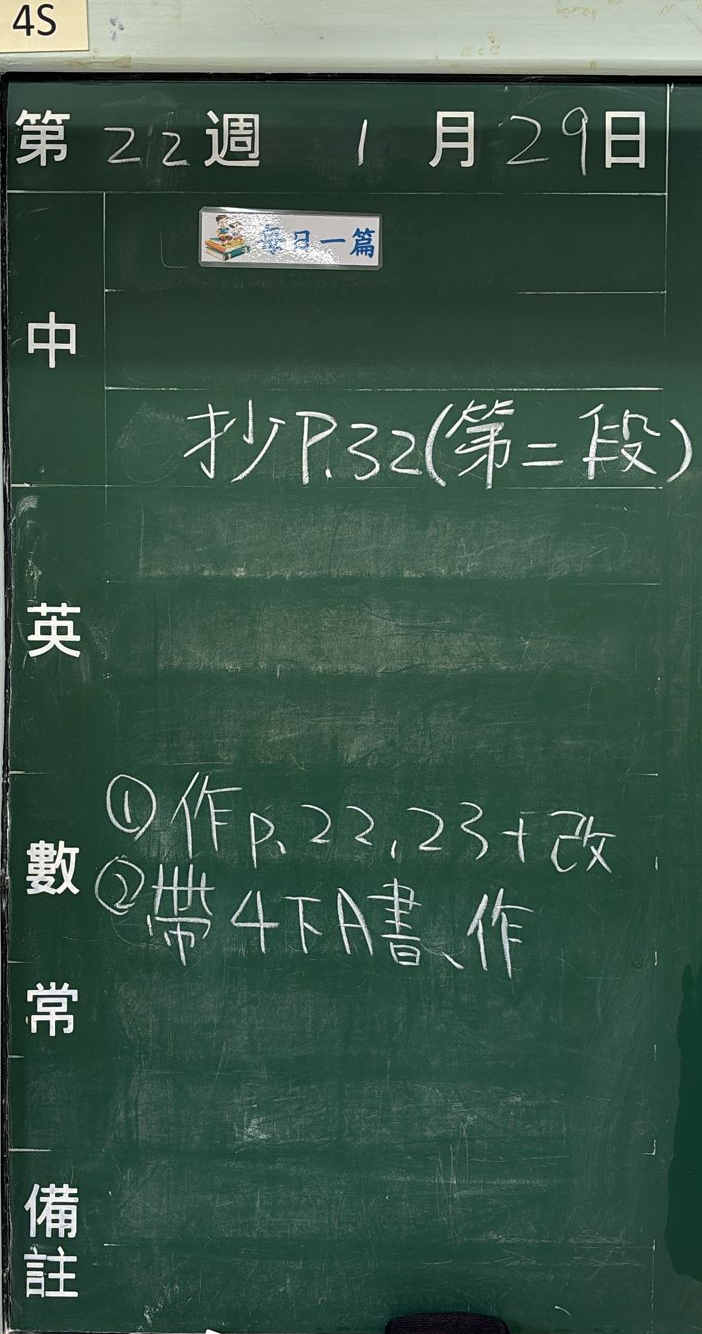 4S
第22週 1月29日
每日一篇
中
抄P.32(第二段)
英
①作p.22,23+改
數
②帶4下A書、作
常
備註